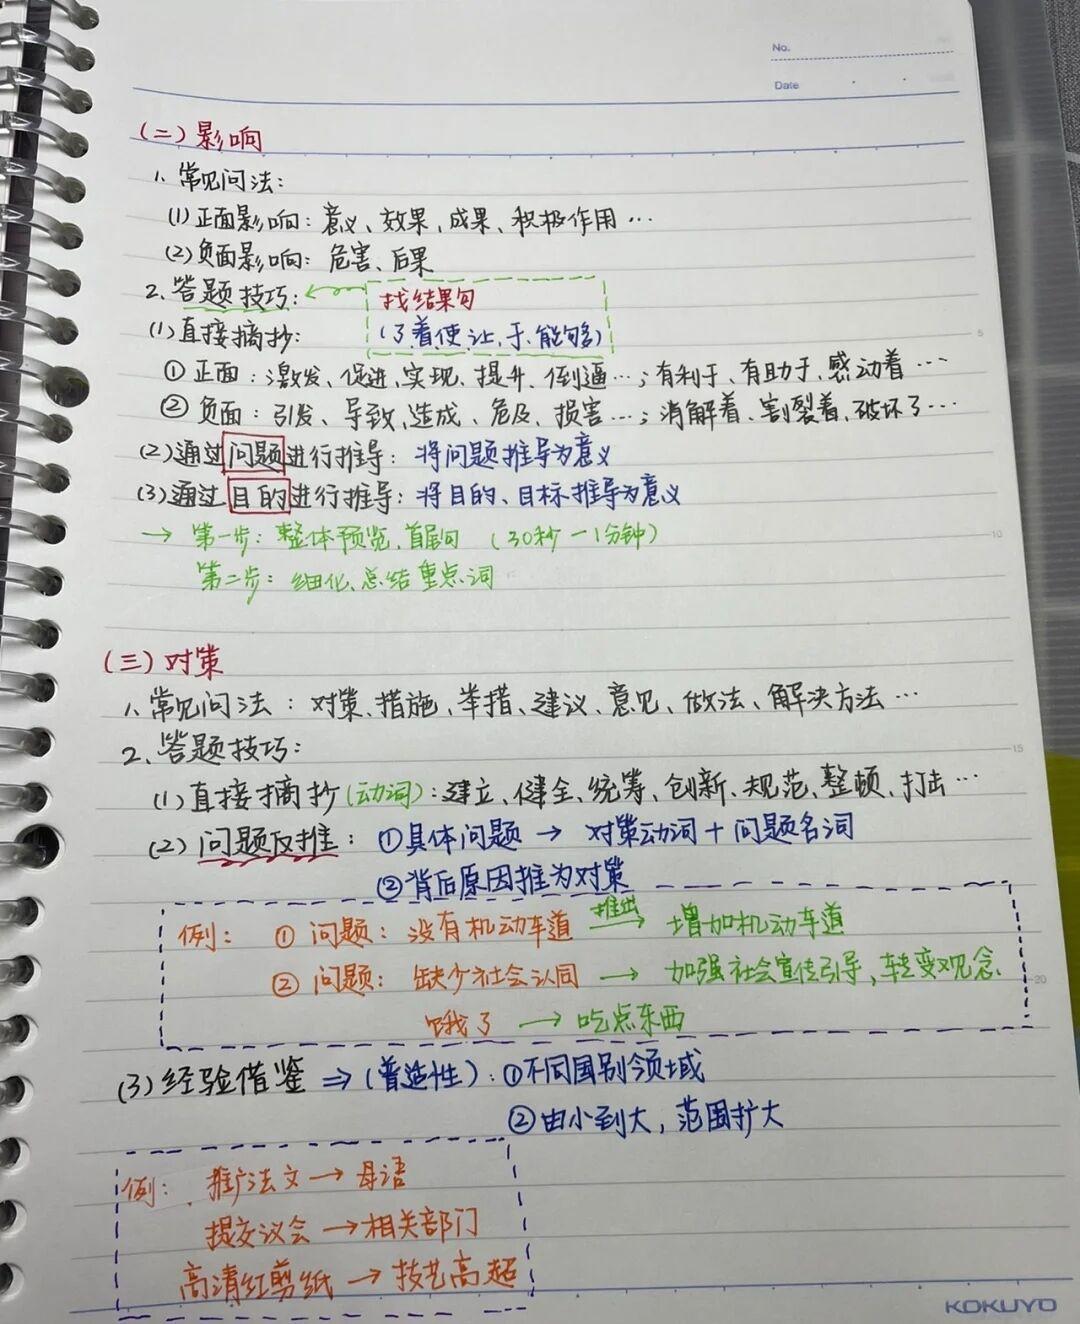 No.
Date
(二)影响
1. 常见问法:
(1)正面影响: 意义、效果、成果、积极作用…
(2)负面影响: 危害、后果
2. 答题技巧: 找结果句
(1)直接摘抄: (了.着.使.让.于.能够)
① 正面: 激发、促进、实现、提升、倒逼…; 有利于、有助于、感动着…
② 负面: 引发、导致、造成、危及、损害…; 消解着、割裂着、破坏了…
(2)通过问题进行推导: 将问题推导为意义
(3)通过目的进行推导: 将目的、目标推导为意义
→ 第一步: 整体预览、首尾句 (30秒一1分钟)
第二步: 细化、总结重点词
5
10
(三)对策
1、常见问法: 对策、措施、举措、建议、意见、做法、解决方法…
2、答题技巧:
15
(1)直接摘抄(动词): 建立、健全、统筹、创新、规范、整顿、打击…
(2)问题反推: ①具体问题 → 对策动词+问题名词
②背后原因推为对策
例: ① 问题: 没有机动车道 推出→ 增加机动车道
② 问题: 缺少社会认同 → 加强社会宣传引导,转变观念.
20
饿了 → 吃点东西
(3)经验借鉴 ⇒ (普适性): ①不同国别领域
②由小到大, 范围扩大
例: 推广法文 → 母语
提交议会 → 相关部门
高清红剪纸 → 技艺高超
KOKUYO